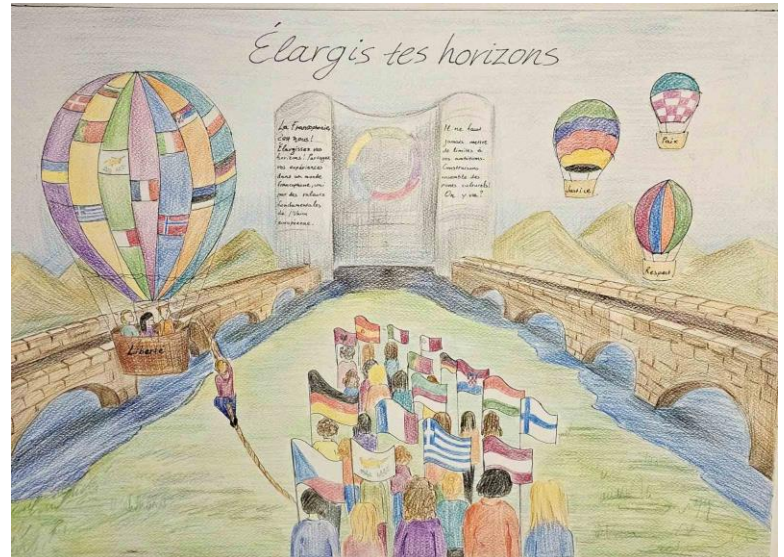 Élargis tes horizons
La Francophonie
c'est nous!
Élargissez vos
horizons! Partagez
vos expériences
dans un monde
francophone, uni
par des valeurs
fondamentales
de l'Union
européenne.
Il ne faut
jamais mettre
de limites à
vos ambitions.
Construisons
ensemble des
ponts culturels!
On y va?
Paix
Justice
Respect
Liberté